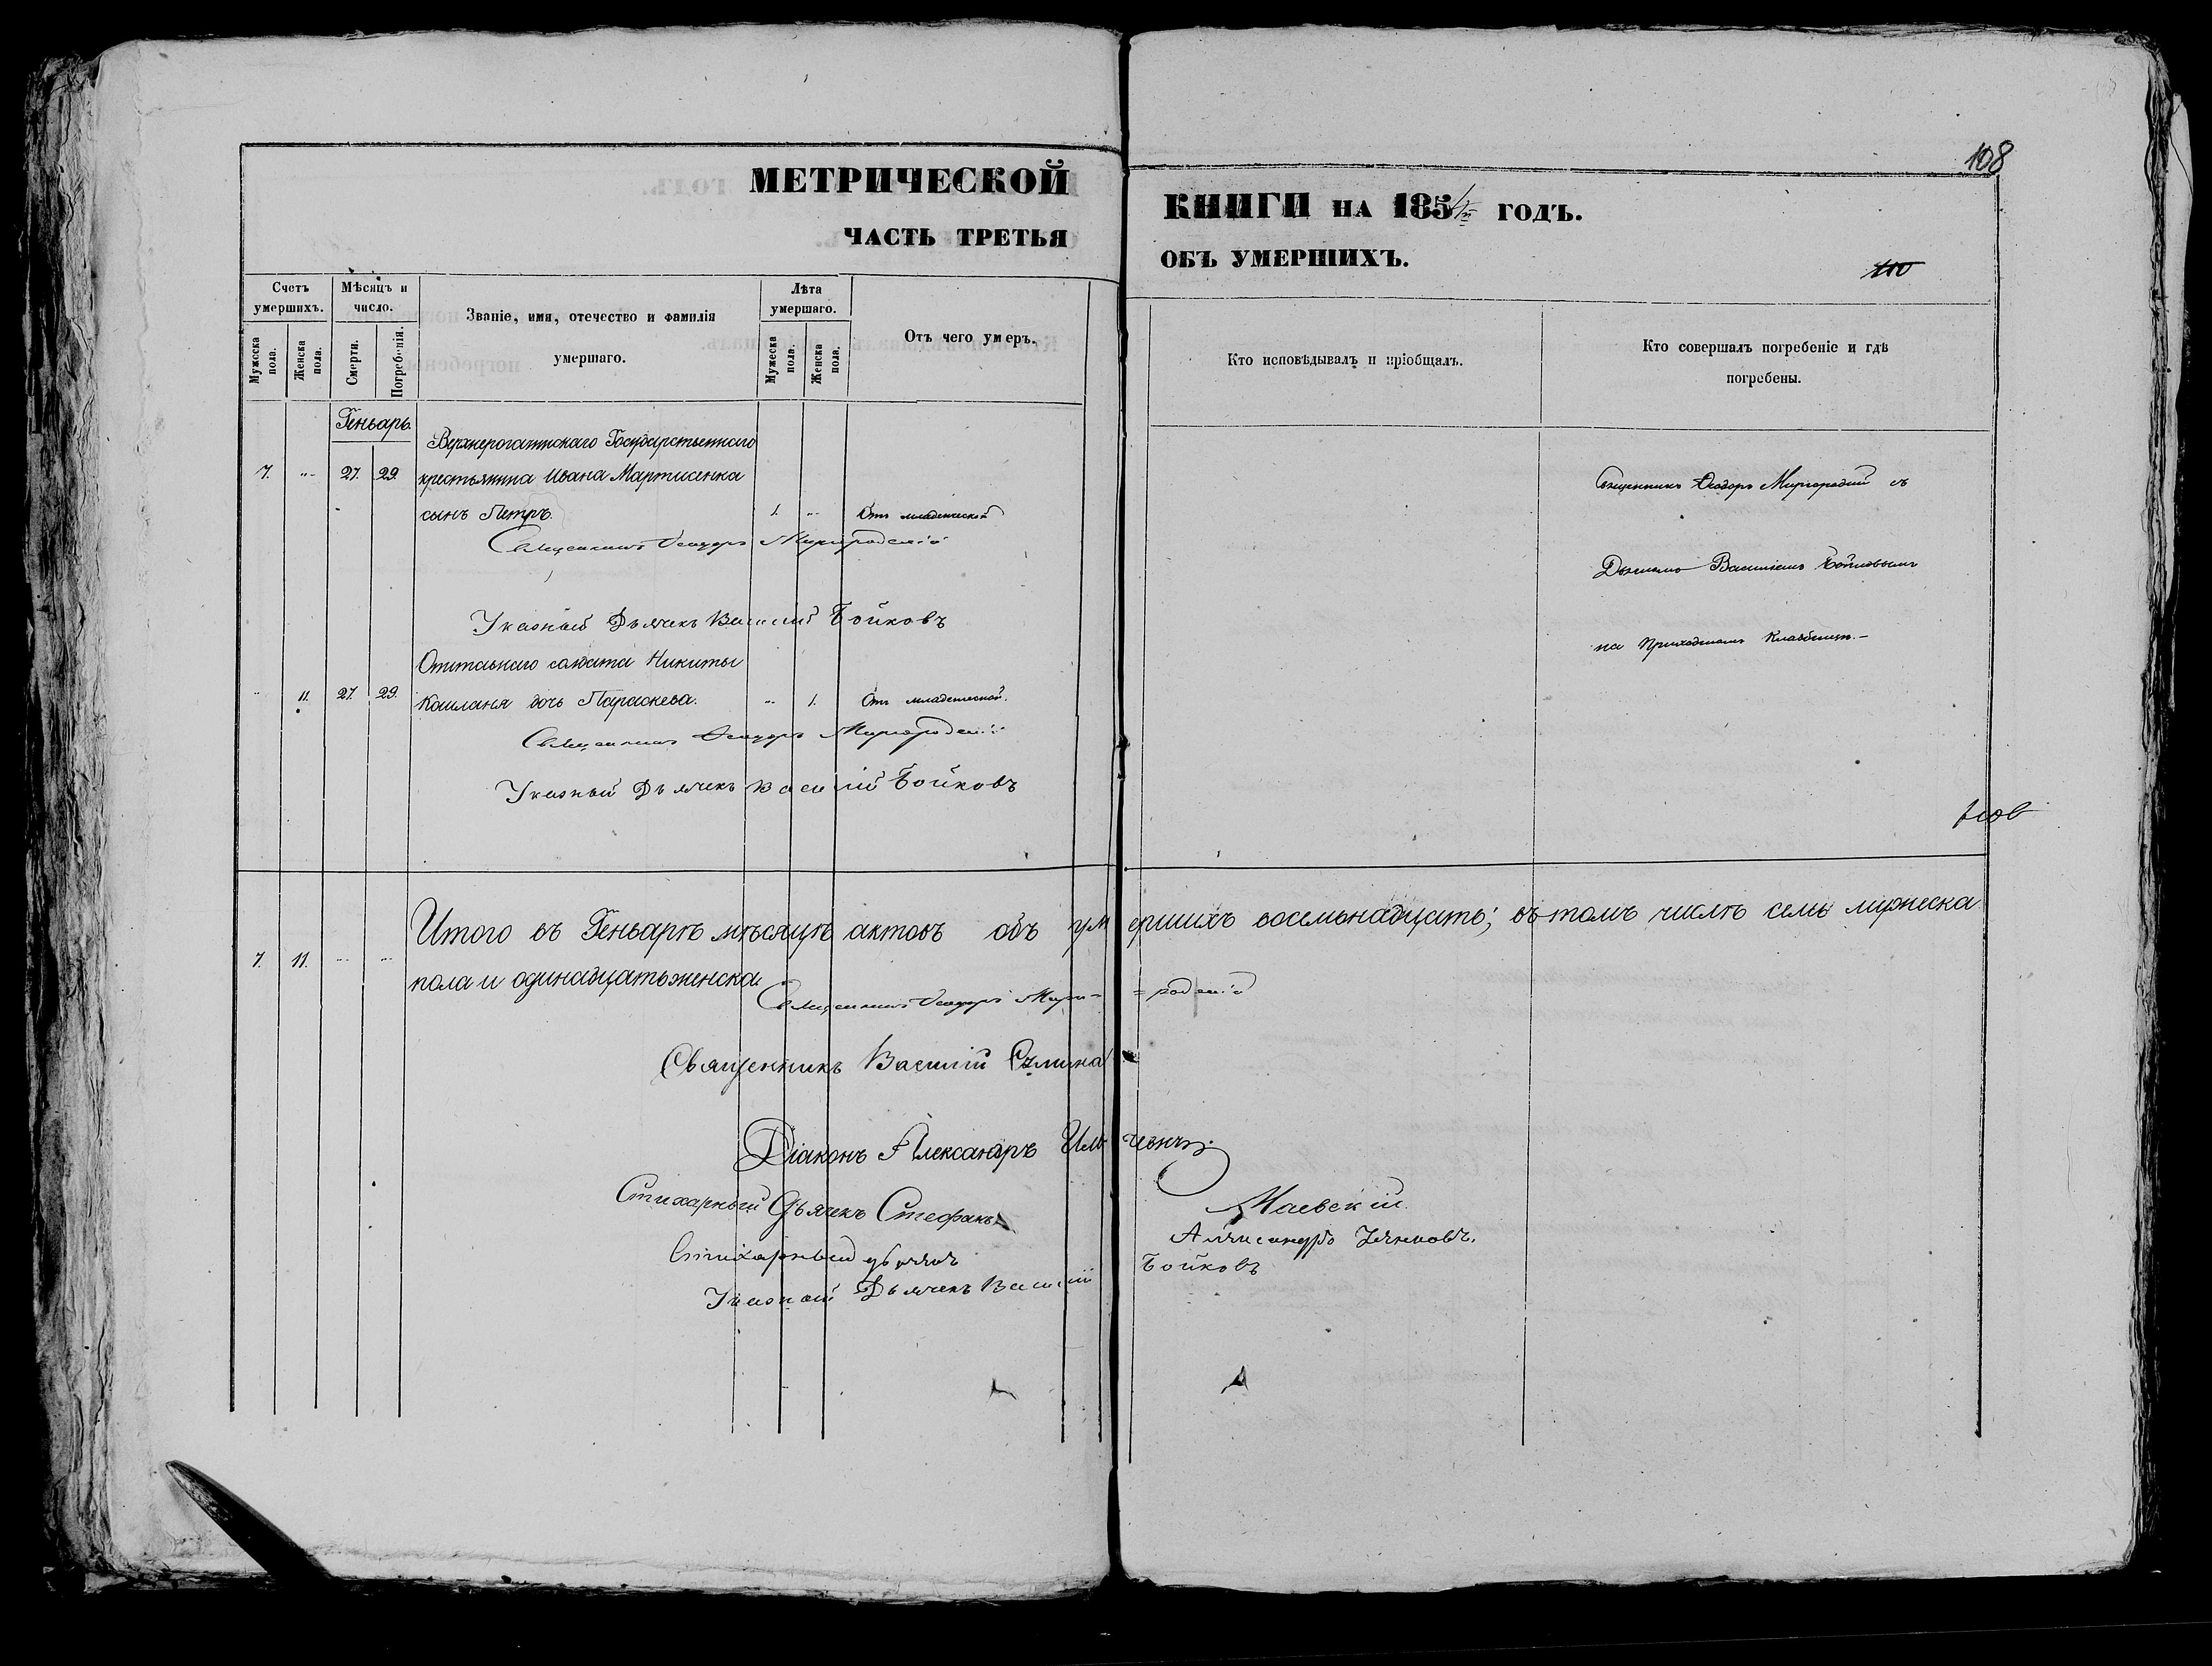 108
МЕТРИЧЕСКОЙ КНИГИ НА 185 ГОДЪ.
ЧАСТЬ ТРЕТЬЯ ОБЪ УМЕРШИХЪ.
110
Счетъ умершихъ.
Мужеска пола.
Женска пола.
Мѣсяцъ и число.
Смерти.
Погребенія.
Званіе, имя, отечество и фамилія умершаго.
Лѣта умершаго.
Мужеска пола.
Женска пола.
Отъ чего умеръ.
Кто исповѣдывалъ и пріобщалъ.
Кто совершалъ погребеніе и гдѣ погребены.
Геньарь.
Верхнерогатинскаго Государственнаго
7. „ 27. 29. крестьянина Ивана Мартисенка
сынъ Петръ. 1. „ Отъ младенческой
Священникъ Ѳеодоръ Миргородскій
Указный Дьячекъ Василий Бойковъ
Священникъ Ѳеодоръ Миргородскій съ
Дьячкомъ Василіемъ Бойковымъ
на Приходскомъ Кладбищѣ.
солдата Никиты
„ 11. 27. 29. Кашланя дочь Параскева. „ 1. Отъ младенческой.
Священникъ Ѳеодоръ Миргородскій
Указный Дьячекъ Василій Бойковъ
Итого въ Геньарѣ мѣсяцѣ актовъ объ умершихъ восемьнадцать; въ томъ числѣ семь мужеска
7. 11. „ „ пола и одинадцать женска.
Священникъ Ѳеодоръ Мирго= =родскій
Священникъ Василій
Діаконъ Александръ
Стихарный Дьячекъ Стефанъ Маевскій.
Стихарный дьячекъ Александръ
Указный Дьячекъ Василій Бойковъ